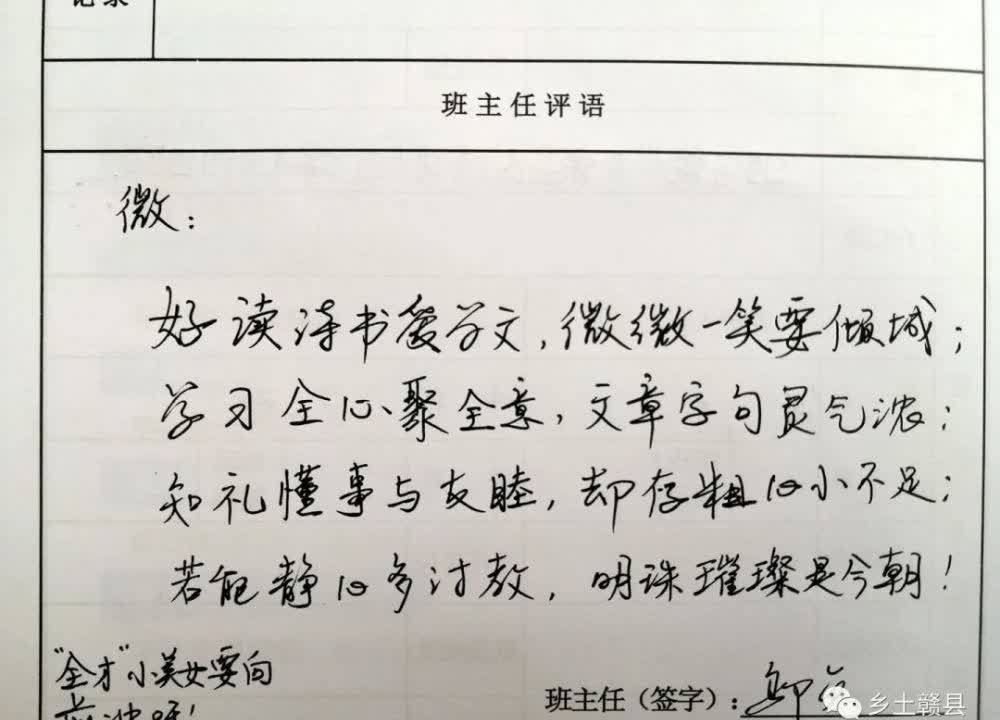 记录
班主任评语
微：
好读诗书爱学文，微微一笑要倾城；
学习全心聚全意，文章字句灵气浓；
知礼懂事与友睦，却存粗心小不足；
若能静心多讨教，明珠璀璨是今朝！
"全才"小美女要向
前冲呀！
班主任（签字）：
乡土赣县